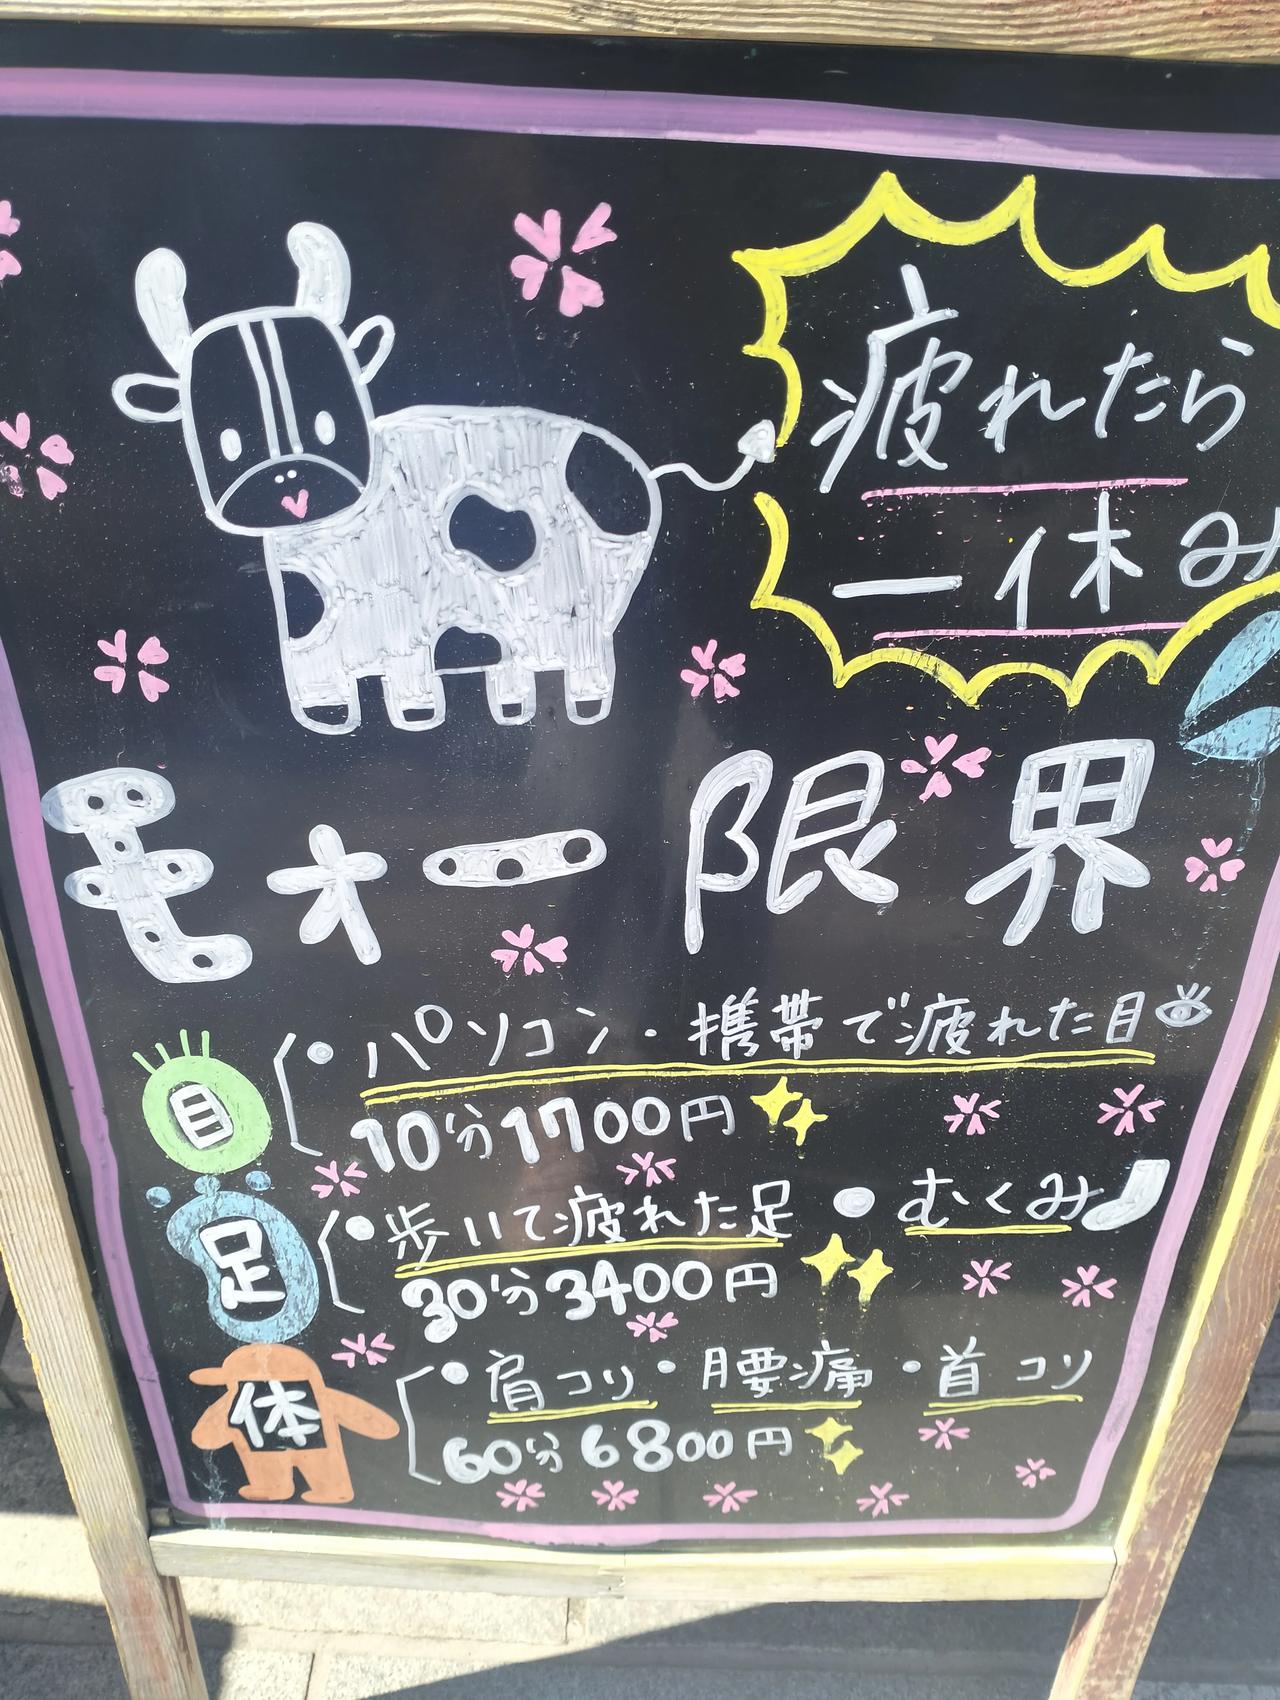 疲れたら
一休み
モォー限界
目
・パソコン・携帯で疲れた目
10分1700円
足
・歩いて疲れた足・むくみ
30分3400円
体
・肩コリ・腰痛・首コリ
60分6800円